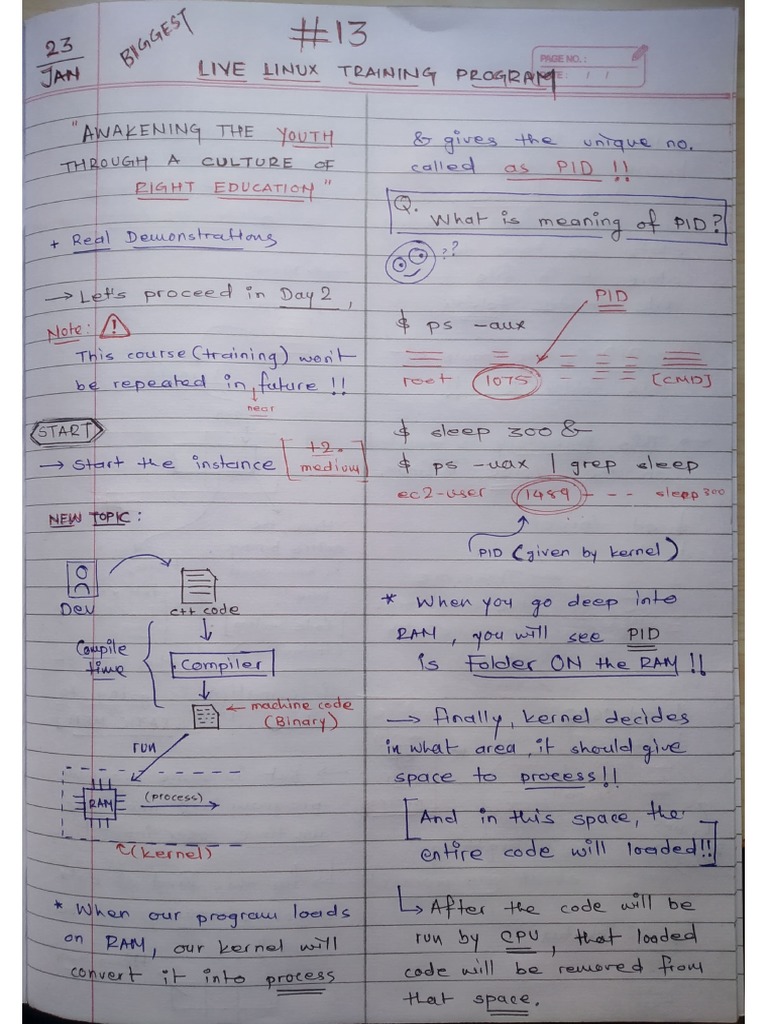 23
JAN
BIGGEST
#13
LIVE LINUX TRAINING PROGRAM
PAGE NO.:
DATE: / /
"AWAKENING THE YOUTH
THROUGH A CULTURE OF
RIGHT EDUCATION"
+ Real Demonstrations
→ Let's proceed in Day 2,
Note: !
This course (training) won't
be repeated in future !!
near
START
→ start the instance [t2.
medium]
NEW TOPIC:
Dev
C++ code
Compile
time
Compiler
← machine code
(Binary)
run
RAM
(process)
(kernel)
* When our program loads
on RAM, our kernel will
convert it into process
& gives the unique no.
called as PID !!
Q. What is meaning of PID?
??
PID
$ ps -aux
root 1075 [CMD]
$ sleep 300 &
$ ps -uax | grep sleep
ec2-user 1489 - - - sleep 300
PID (given by kernel)
* When you go deep into
RAM, you will see PID
is Folder ON the RAM !!
→ finally, kernel decides
in what area, it should give
space to process!!
[And in this space, the
entire code will loaded!!]
↳ After the code will be
run by CPU, that loaded
code will be removed from
that space.